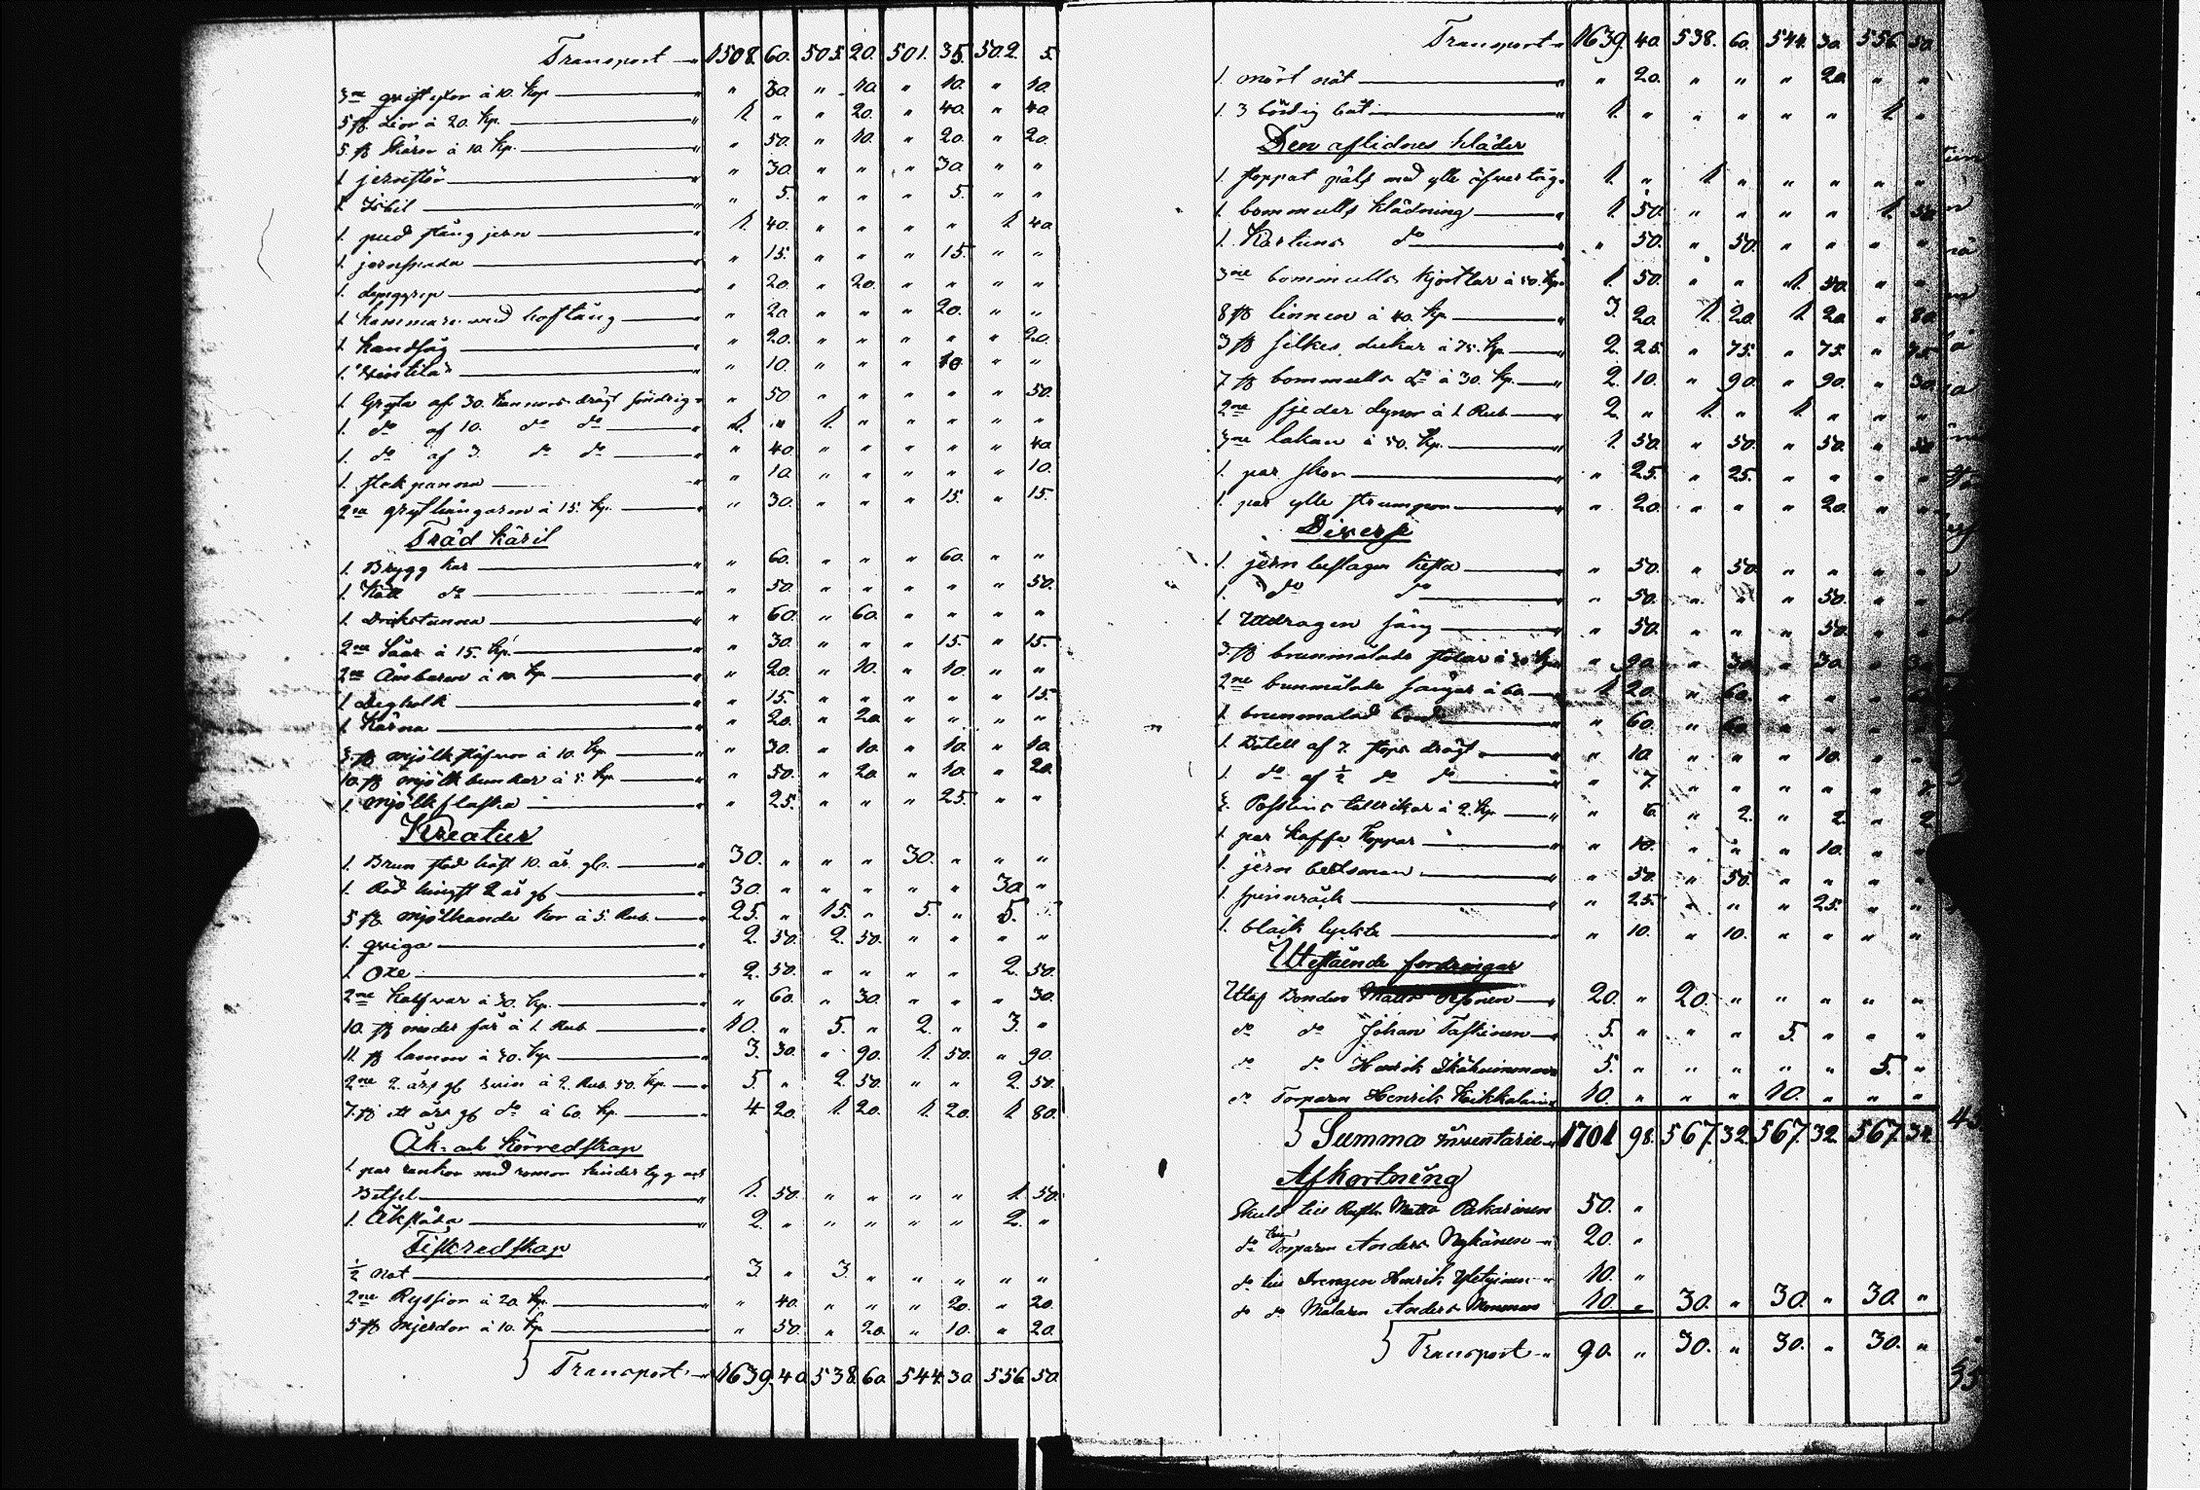 Transport 1508. 60. 505. 20. 501. 35. 502. 5.
3ne à 10. Kop " 30. " 10. " 10. " 10.
5 st Lior à 20. Kp. 1. " " 20. " 40. " 40
5. st Skäror à 10. Kp. " 50. " 10. " 20. " 20.
1 jernstör " 30. " " " 30. " "
1 Isbil " 5. " " " 5. " "
1. pud stång jern 1. 40. " " " " 1 40
1. jernspada " 15. " " " 15. " "
1. dynggrep " 20. " 20. " " " "
1 hammare med hoftång " 20 " " " 20. " "
1 handsåg " 20. " " " " " 20.
1. " 10. " " " 10 " "
1 Gryta af 30. kannors drägt söndrig " 50 " " " " " 50.
1. do af 10. do do 1. " 1. " " " " "
1. do af 3. do do " 40 " " " " " 40
1. stekpanna " 10 " " " " " 10.
2ne grythängaren à 15. Kp. " 30. " " " 15. " 15.
Träd käril
1. Brygg kar " 60. " " " 60. " "
1. do " 50. " " " " " 50.
1. Drickstunna " 60. " 60. " " " "
2ne Såar à 15. Kp. " 30. " " " 15. " 15.
2ne Ämbaren à 10. Kp " 20. " 10. " 10. " "
1 Degholk " 15. " " " " " 15.
1 Kärna " 20. " 20. " " " "
3. st mjölkstäfvor à 10. Kp. " 30. " 10. " 10. " 10
10. st mjölk bunkar à 5. Kp. " 50. " 20. " 10. " 20.
1. mjölkflaska " 25. " " " 25. " "
Kreatur
1. Brun stod häst 10. år gl. 30. " " " 30. " " "
1. Röd hingst 2 år gl 30. " " " " " 30 "
5 st mjölkande kor à 5. Rub. 25. " 15. " 5. " 5. "
1. qviga 2. 50. 2. 50. " " " "
1. Oxe 2. 50. " " " " 2. 50.
2ne kalfvar à 30. Kp. " 60. " 30. " " " 30.
10. st moder får à 1 Rub 10. " 5. " 2. " 3. "
11. st lamm à 30. Kp. 3. 30. " 90. 1. 50. " 90.
2ne 2. års gl svin à 2. Rub. 50. Kp. 5. " 2. 50. " " 2. 50.
7. st ett års gl do à 60. Kp. 4 20. 1. 20. 1. 20. 1 80.
Åk- och Körredskap
1. par rankor med remon hindertyg och
Betsel 1. 50. " " " " 1. 50.
1. Åksläda 2. " " " " " 2. "
Fiskredskap
1/2 Not 3. " 3. " " " " "
2ne Ryssior à 20. Kp. " 40. " " " 20. " 20.
5 st mjerdor à 10. Kp " 50. " 20. " 10. " 20
Transport 1639. 40. 538. 60. 544. 30 556. 50.
Transport 1639. 40. 538. 60. 544. 30. 556. 50.
1. mört nät " 20. " " " 20. " "
1. 3 bördig båt 1. " " " " " 1. "
Den aflidnes kläder
1. stoppat päls med ylle öfvertyg 1. " 1. " " " " "
1. bommulls klädning 1. 50. " " " " 1. 50.
1. Kartuns do " 50. " 50. " " " "
3ne bommulls kjortlar à 50. Kp. 1. 50. " " 1. 50. " "
8 st linnen à 40. Kp 3. 20. 1. 20. 1. 20 " 80.
3 st silkes dukar à 75. Kp. 2. 25. " 75. " 75. " 75
7 st bommulls do à 30. Kp. 2. 10. " 90. " 90. " 30.
2ne fjeder dynor à 1 Rub 2. " 1. " 1. " " "
3ne lakan à 50. Kp. 1. 50. " 50. " 50. " 50
1. par skor " 25. " 25. " " " "
1. par ylle strumpor " 20. " " " 20. " "
Diverse
1. jern beslagen kista " 50. " 50. " " " "
1. do do " 50. " " " 50. " "
1 Utdragen säng " 50. " " " 50. " "
3. st brunmålade stolar à 30 Kp. " 90. " 30. " 30. " 30.
2ne brunmålade à 60. 1. 20. " 60. " " " 60.
1 brunmålad bord " 60. " 60. " " " "
1. Butell af 2. stops drägt " 10. " " " 10. " "
1. do af 1/2 do do " 7. " " " " " 7.
3. Postlins tallrikar à 2. Kp. " 6. " 2. " 2. " 2
1. par kaffe koppar " 10. " " " 10. " "
1. jern betsman " 50. " 50. " " " "
1 spinnråck " 25. " " " 25. " "
1. bläck lyckta " 10. " 10. " " " "
Utestående fordringar
Utaf Bonden Matts 20. " 20. " " " " "
do do Johan Taskinen 5. " " " 5. " " "
do do Henrik 5. " " " " " 5. "
do Torparn Henrik Heikkalain 10. " " " 10. " " "
Summa inventarie 1701 98. 567. 32 567. 32 567. 34
Afkortning
Skuld till Matts Pakarinen 50. "
do till Torparn Anders Nykänen 20. "
do till Drengen Henrik 10. "
do do Målarn Anders 10. " 30. " 30. " 30. "
Transport 90. " 30. " 30. " 30. "